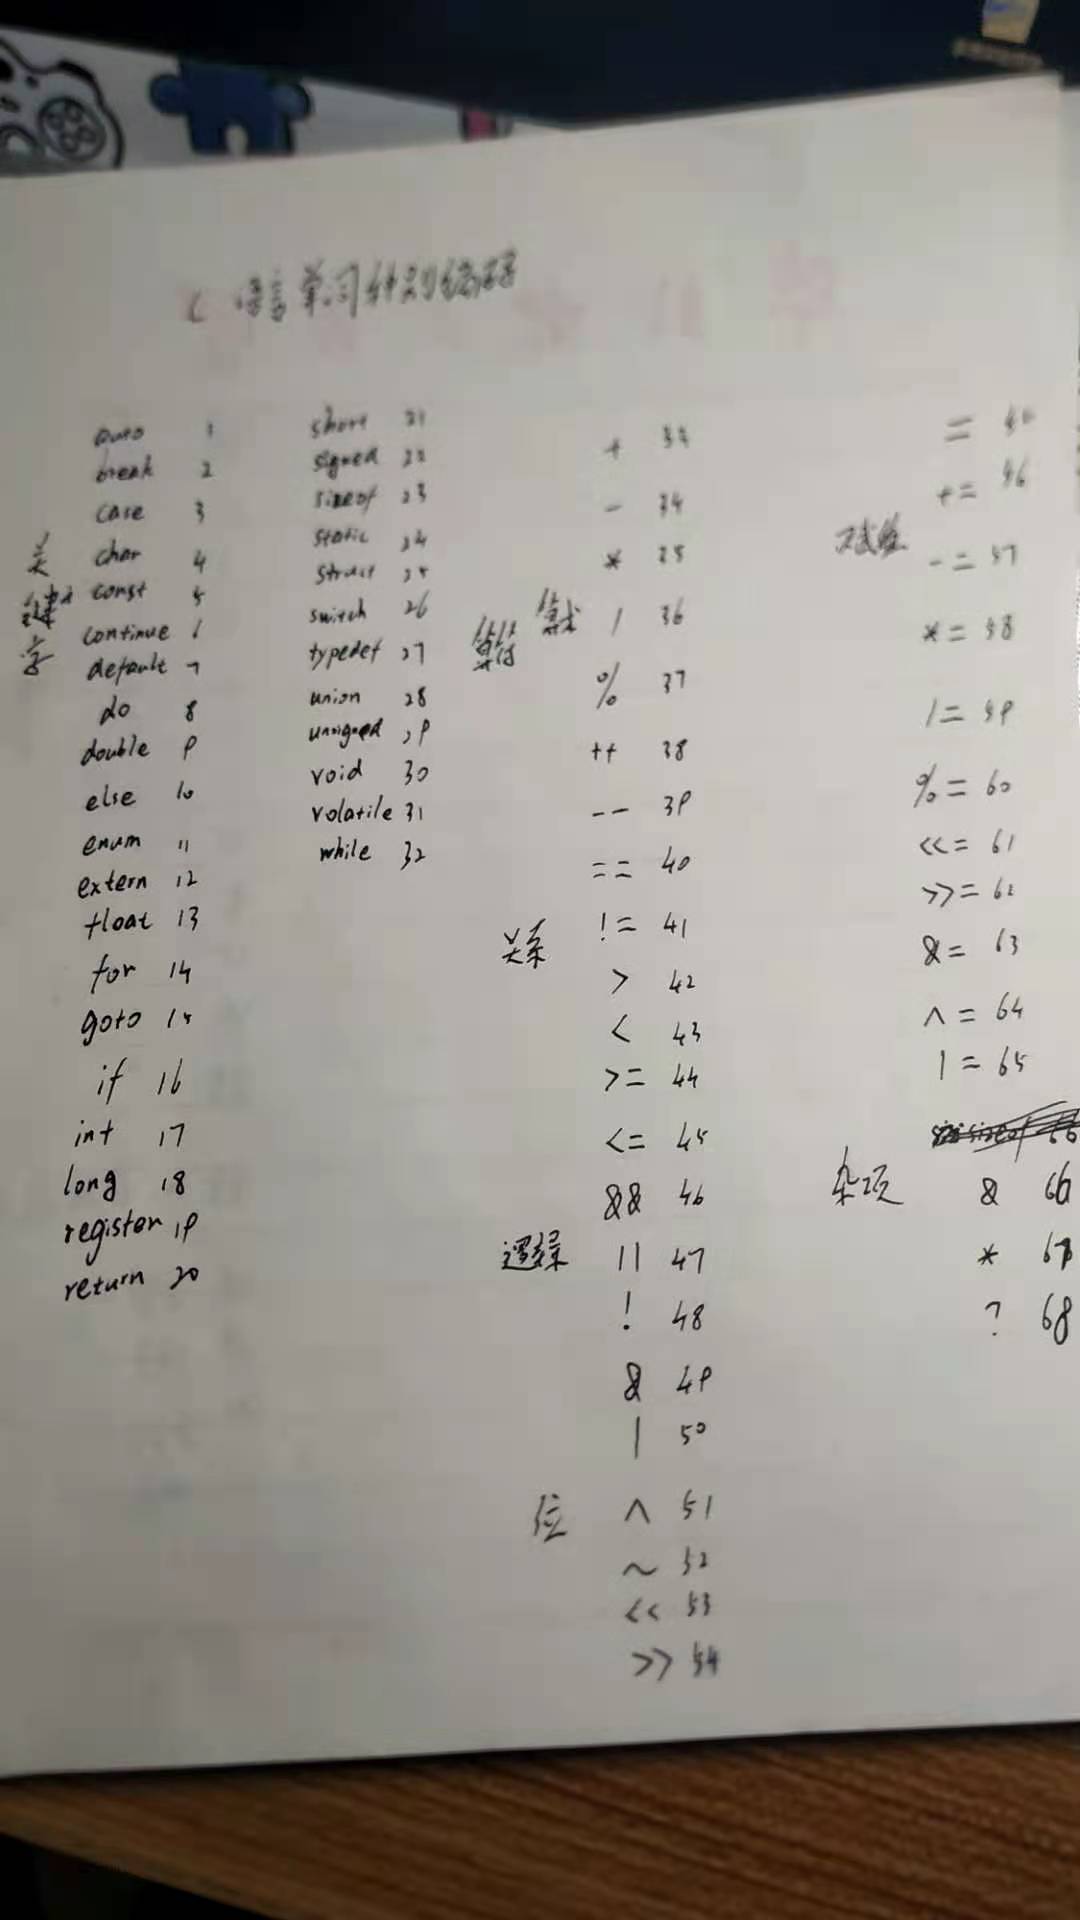 C 语言单词种别编码
关键字
auto 1
break 2
case 3
char 4
const 5
continue 6
default 7
do 8
double 9
else 10
enum 11
extern 12
float 13
for 14
goto 15
if 16
int 17
long 18
register 19
return 20
short 21
signed 22
sizeof 23
static 24
struct 25
switch 26
typedef 27
union 28
unsigned 29
void 30
volatile 31
while 32
算术
+ 33
- 34
* 35
/ 36
% 37
++ 38
-- 39
关系
== 40
!= 41
> 42
< 43
>= 44
<= 45
逻辑
&& 46
|| 47
! 48
位
& 49
| 50
^ 51
~ 52
<< 53
>> 54
= 55
+= 56
-= 57
*= 58
/= 59
%= 60
<<= 61
>>= 62
&= 63
^= 64
|= 65
杂项
& 66
* 67
? 68